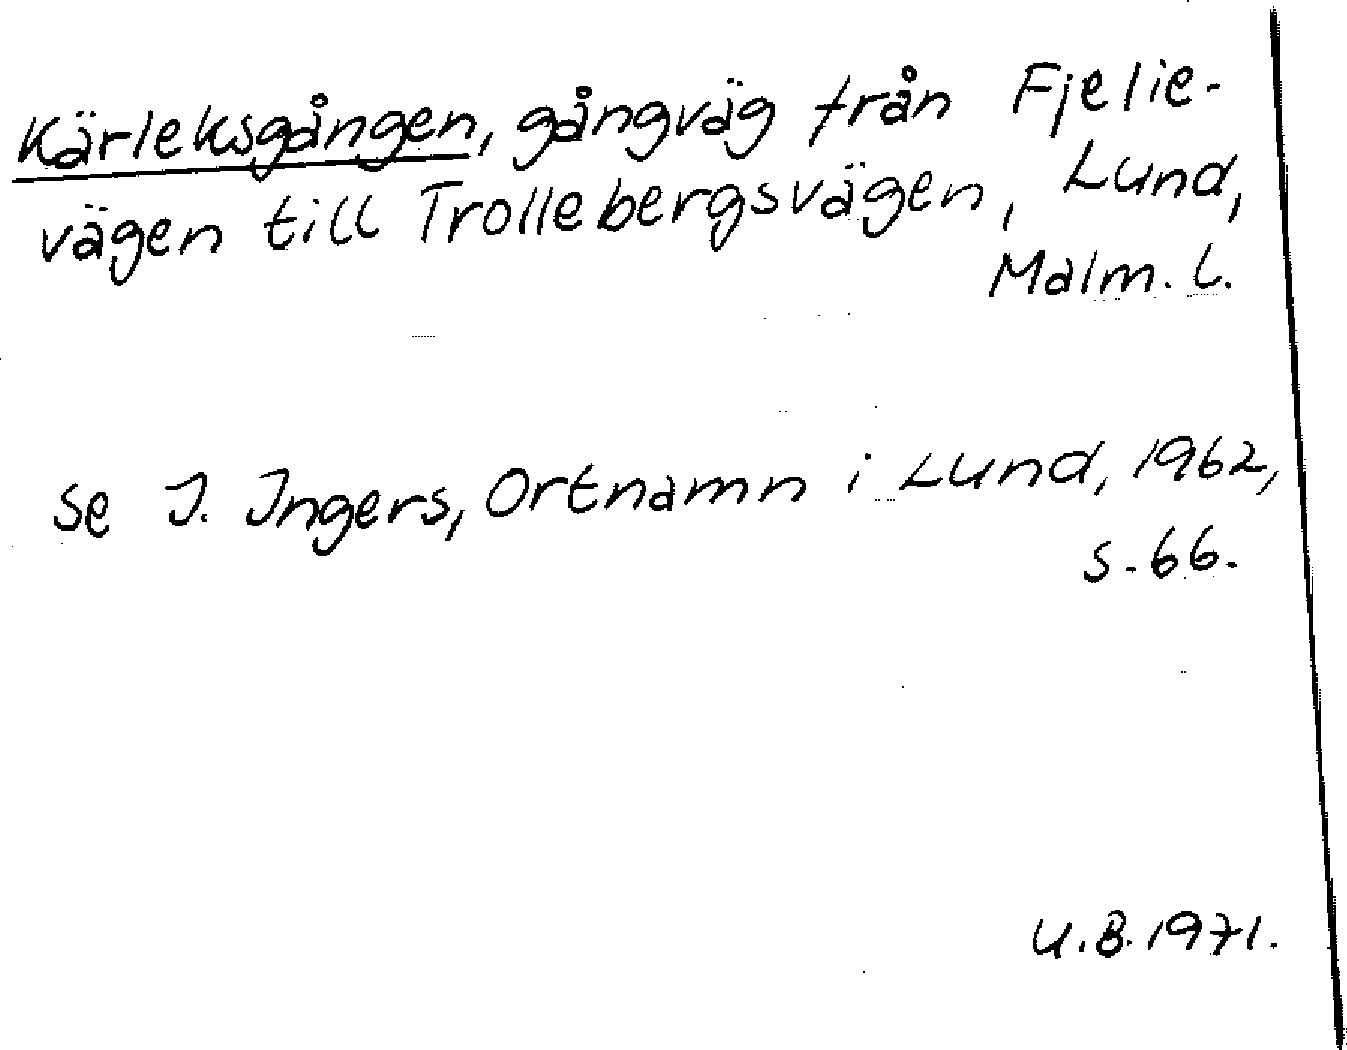 Kärleksgången, gångväg från Fjelie-
vägen till Trollebergsvägen, Lund,
Malm. l.
Se I. Ingers, Ortnamn i Lund, 1962,
s. 66.
U.B. 1971.